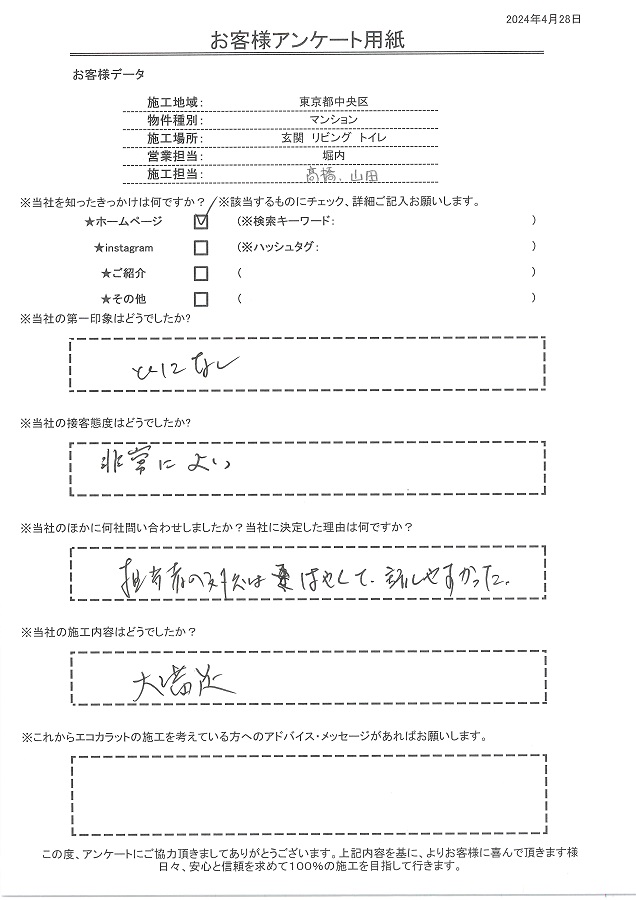 2024年4月28日
お客様アンケート用紙
お客様データ
施工地域： 東京都中央区
物件種別： マンション
施工場所： 玄関 リビング トイレ
営業担当： 堀内
施工担当： 高橋、山田
※当社を知ったきっかけは何ですか？／※該当するものにチェック、詳細ご記入お願いします。
★ホームページ ☑ (※検索キーワード： )
★instagram □ (※ハッシュタグ： )
★ご紹介 □ ( )
★その他 □ ( )
※当社の第一印象はどうでしたか?
とくになし
※当社の接客態度はどうでしたか?
非常によい
※当社のほかに何社問い合わせしましたか？当社に決定した理由は何ですか？
担当者の対応ははやくて、話しやすかった。
※当社の施工内容はどうでしたか？
大満足
※これからエコカラットの施工を考えている方へのアドバイス・メッセージがあればお願いします。
この度、アンケートにご協力頂きましてありがとうございます。上記内容を基に、よりお客様に喜んで頂きます様
日々、安心と信頼を求めて100％の施工を目指して行きます。